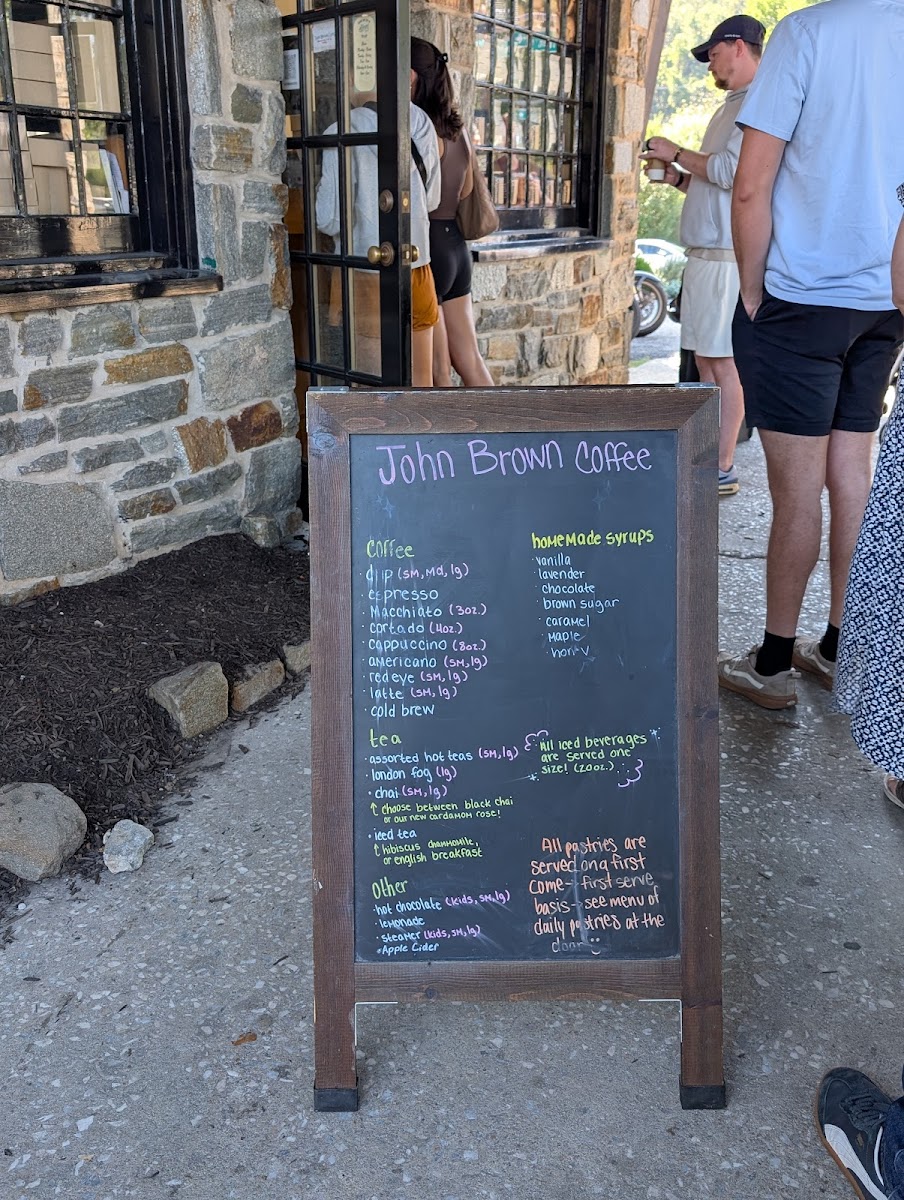 John Brown Coffee
Coffee
· drip (SM, MD, lg)
· espresso
· Macchiato (3oz.)
· cortado (4oz.)
· cappuccino (8oz.)
· americano (SM, lg)
· redeye (SM, lg)
· latte (SM, lg)
· cold brew
tea
· assorted hot teas (SM, lg)
· london fog (lg)
· chai (SM, lg)
↑ choose between black chai
or our new cardamom rose!
· iced tea
↑ hibiscus chammomile,
or english breakfast
Other
· hot chocolate (kids, SM, lg)
· lemonade
· steamer (kids, SM, lg)
· Apple Cider
homemade syrups
· vanilla
· lavender
· chocolate
· brown sugar
· caramel
· Maple
· honey
All iced beverages
are served one
size! (20oz.)
All pastries are
served on a first
come - first serve
basis - see menu of
daily pastries at the
door